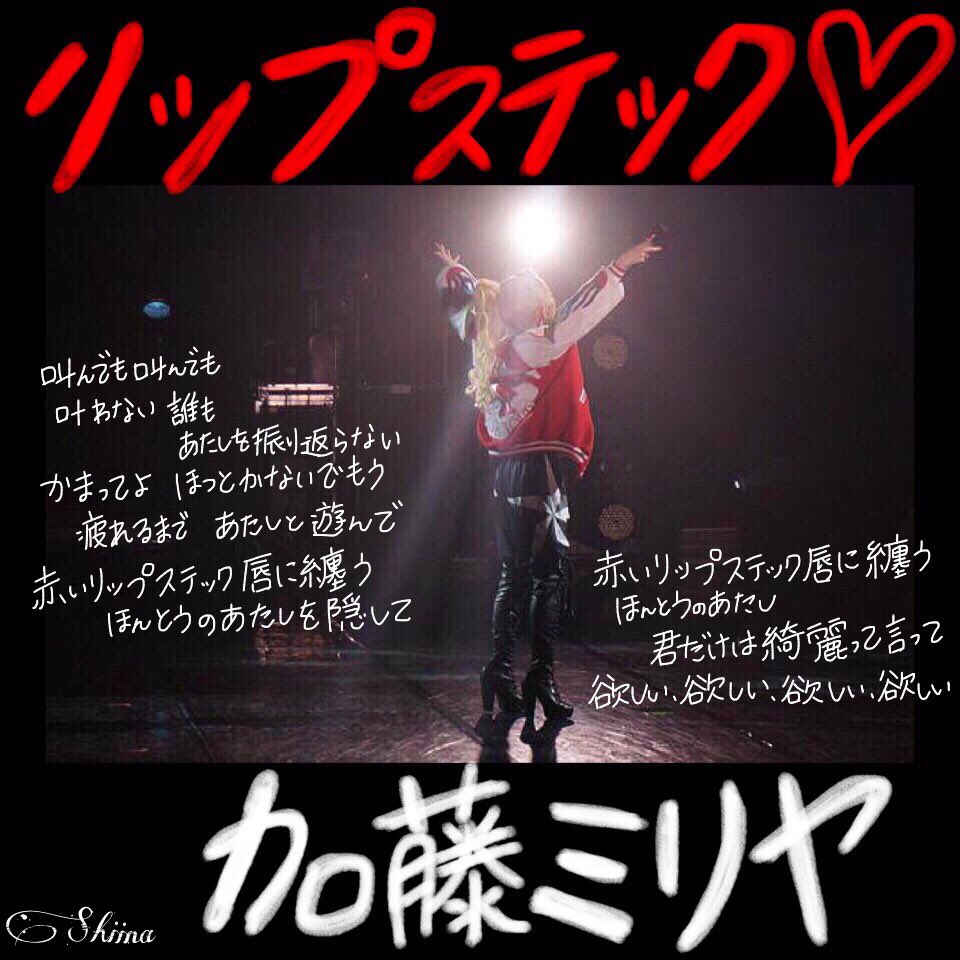 リップスティック♡
叫んでも叫んでも
叶わない 誰も
あたしを振り返らない
かまってよ ほっとかないでもう
疲れるまで あたしと遊んで
赤いリップスティック唇に纏う
ほんとうのあたしを隠して
赤いリップスティック唇に纏う
ほんとうのあたし
君だけは綺麗って言って
欲しい、欲しい、欲しい、欲しい
加藤ミリヤ
Shiina